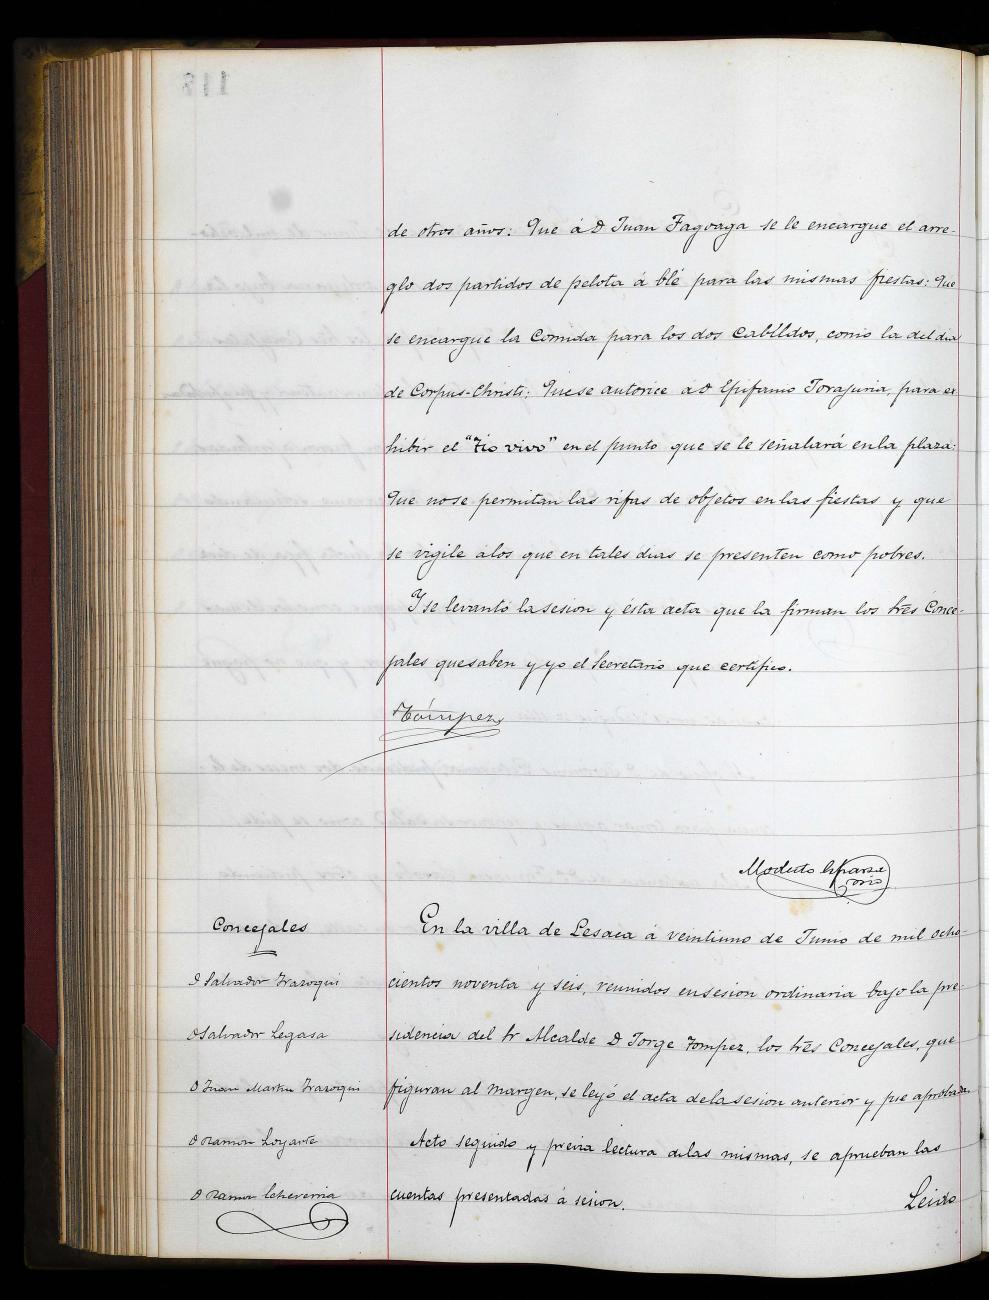 de otros años: Que á D Juan Fagoaga se le encargue el arre-
glo dos partidos de pelota á blé para las mismas fiestas: Que
se encargue la Comida para los dos Cabildos, como la del dia
de Corpus-Christi: Que se autorice á D Epifanio Torajuria, para ex
hibir el "Tio vivo" en el punto que se le señalará en la plaza:
Que no se permitan las rifas de objetos en las fiestas y que
se vigile a los que en tales dias se presenten como pobres.
Y se levantó la sesion y ésta acta que la firman los trés Conce-
jales que saben y yo el Secretario que certifico.
Tómpez
Modesto Esparza
srio
Concejales
D Salvador Irazoqui
D Salvador Legasa
D Juan Martin Irazoqui
D Ramon Loyarte
D Ramon Echeverria
En la villa de Lesaca á veintiuno de Junio de mil ocho-
cientos noventa y seis, reunidos en sesion ordinaria bajo la pre-
sidencia del Sr Alcalde D Jorge Tompez, los trés Concejales, que
figuran al margen, se leyó el acta de la sesion anterior y fue aprobada.
Acto seguido y previa lectura de las mismas, se aprueban las
cuentas presentadas á sesion. Leido